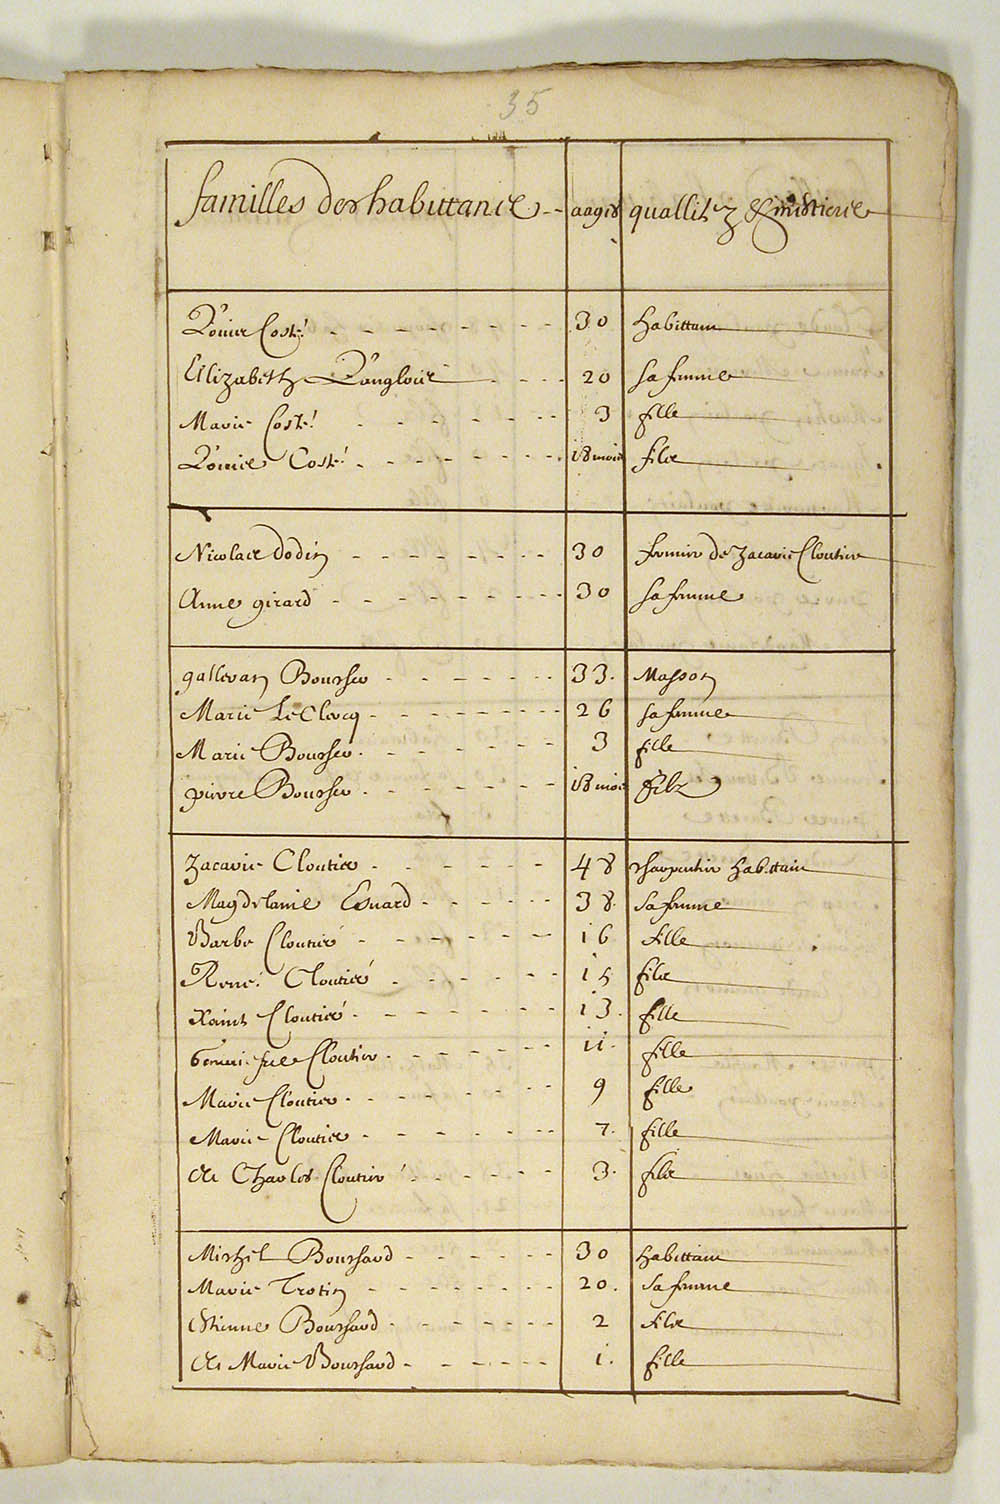 35
familles des habittans aagés quallitez & mestiers
Louis Costé 30 habittant
Elizabeth Langlois 20 sa femme
Marie Costé 3 fille
Louis Costé 18 mois filz
Nicolas Dodin 30 fermier de Zacarie Cloutier
Anne girard 30 sa femme
galleran Boucher 33. Masson
Marie LeClercq 26 sa femme
Marie Boucher 3 fille
pierre Boucher 18 mois filz
Zacarie Cloutier 48 charpentier habittant
Magdelaine Esnard 38. sa femme
Barbe Cloutier 16 fille
René Cloutier 15 filz
Xainte Cloutier 13. fille
Geneviefve Cloutier 11. fille
Marie Cloutier 9 fille
Marie Cloutier 7. fille
Et Charles Cloutier 3. filz
Michel Bouchard 30 habittant
Marie Trotin 20. sa femme
Estienne Bouchard 2 filz
Et Marie Bouchard 1. fille